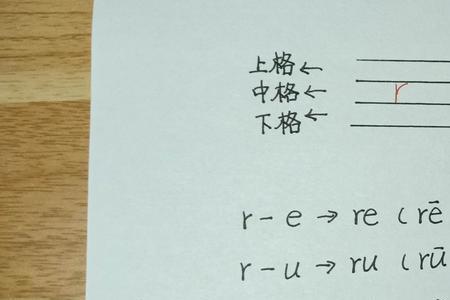 上格←
中格← r
下格←
r-e→re(rē
r-u→ru(rū